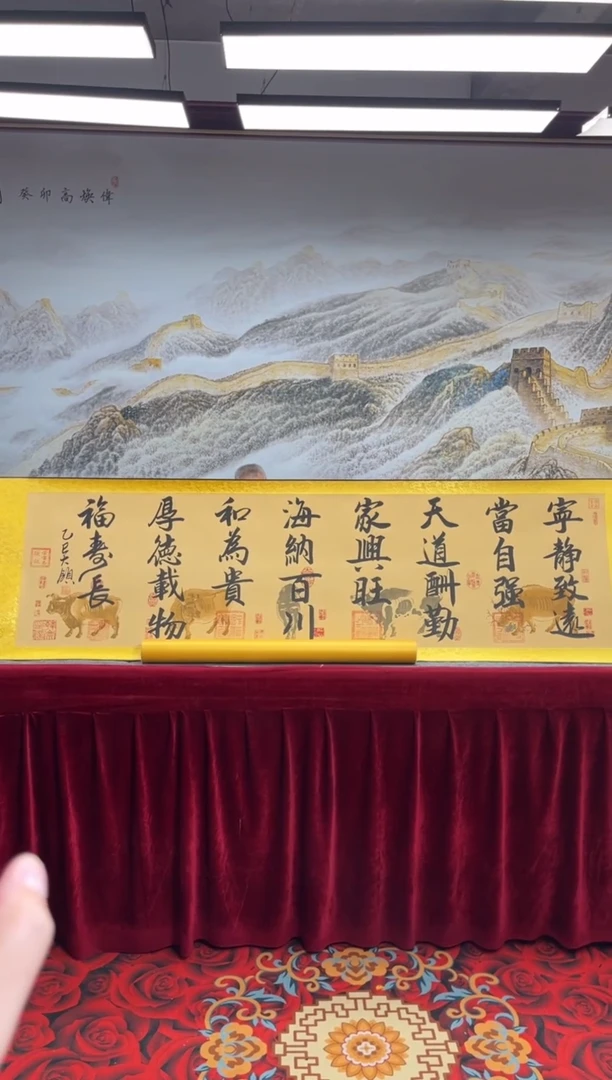 癸卯高焕偉
寧静致遠
當自强
天道酬勤
家興旺
海納百川
和為貴
厚德載物
福壽長
乙巳大領